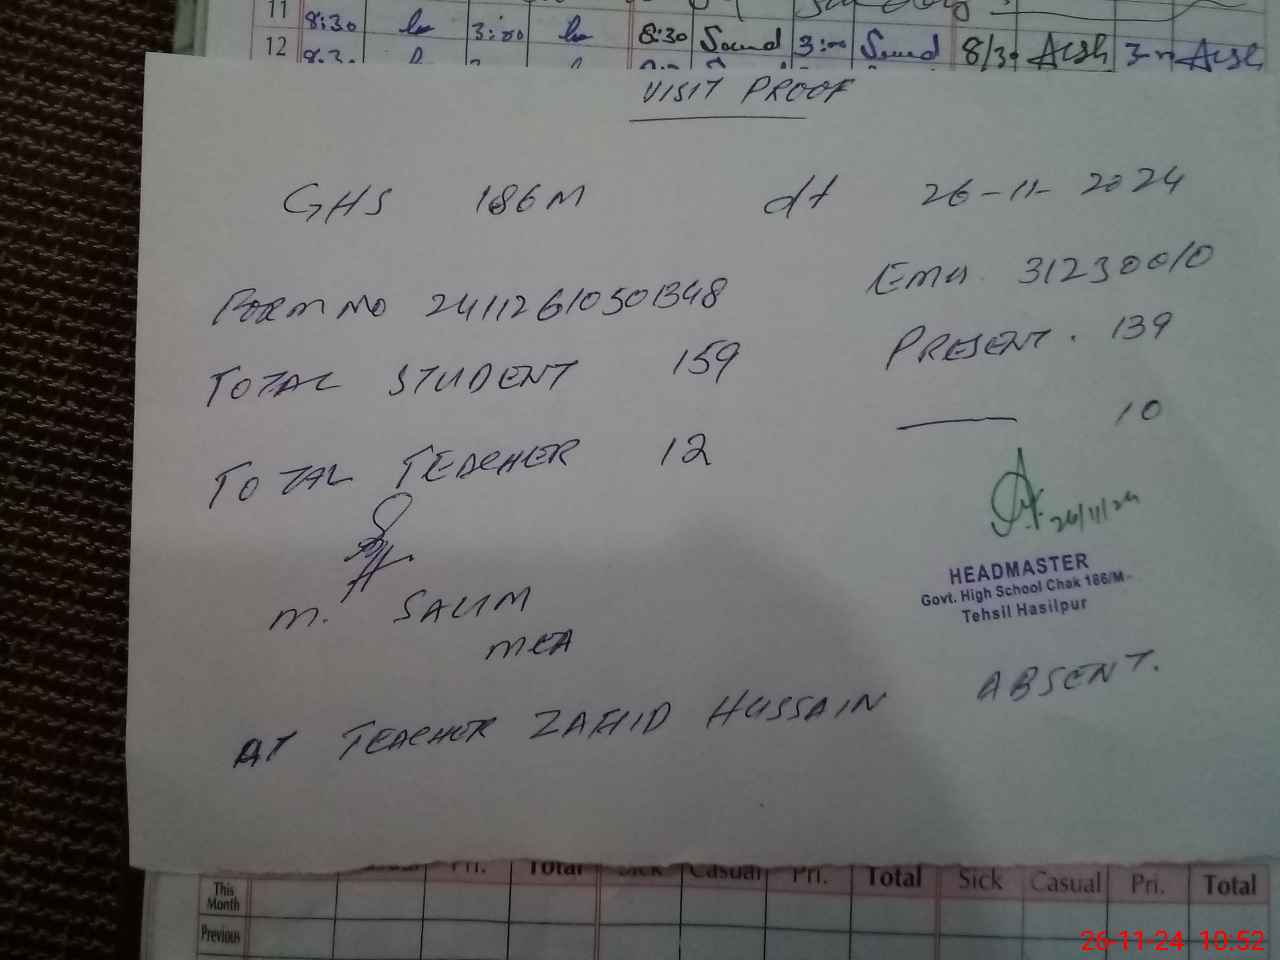 11 8:30 3:00 8:30
12 8:30 3:00 8/30
VISIT PROOF
GHS 186M dt 26-11-2024
FORM NO 24112610501348 EMIS 31230010
TOTAL STUDENT 159 PRESENT. 139
TOTAL TEACHER 12 — 10
26/11/24
HEADMASTER
Govt. High School Chak 186/M
Tehsil Hasilpur
M. SALIM
MEA
AT TEACHER ZAHID HUSSAIN ABSENT.
Pri. Total Sick Casual Pri. Total Sick Casual Pri. Total
This Month
Previous
26-11-24 10:52